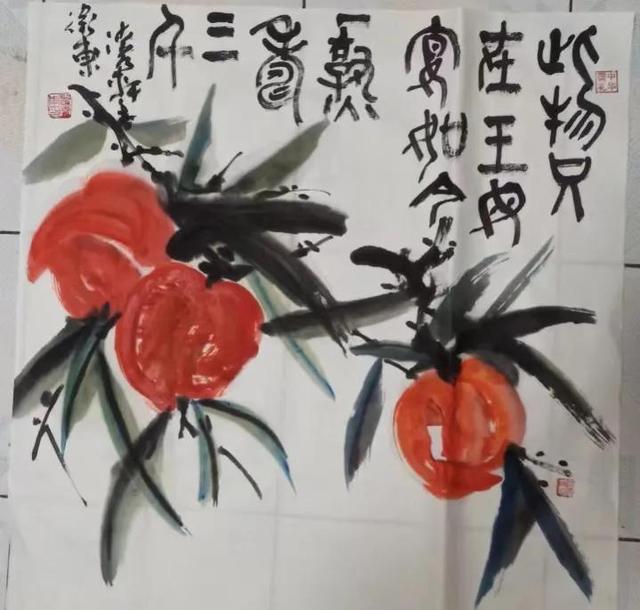 此物只
在王母
宴如今
一熟
壽
三
千